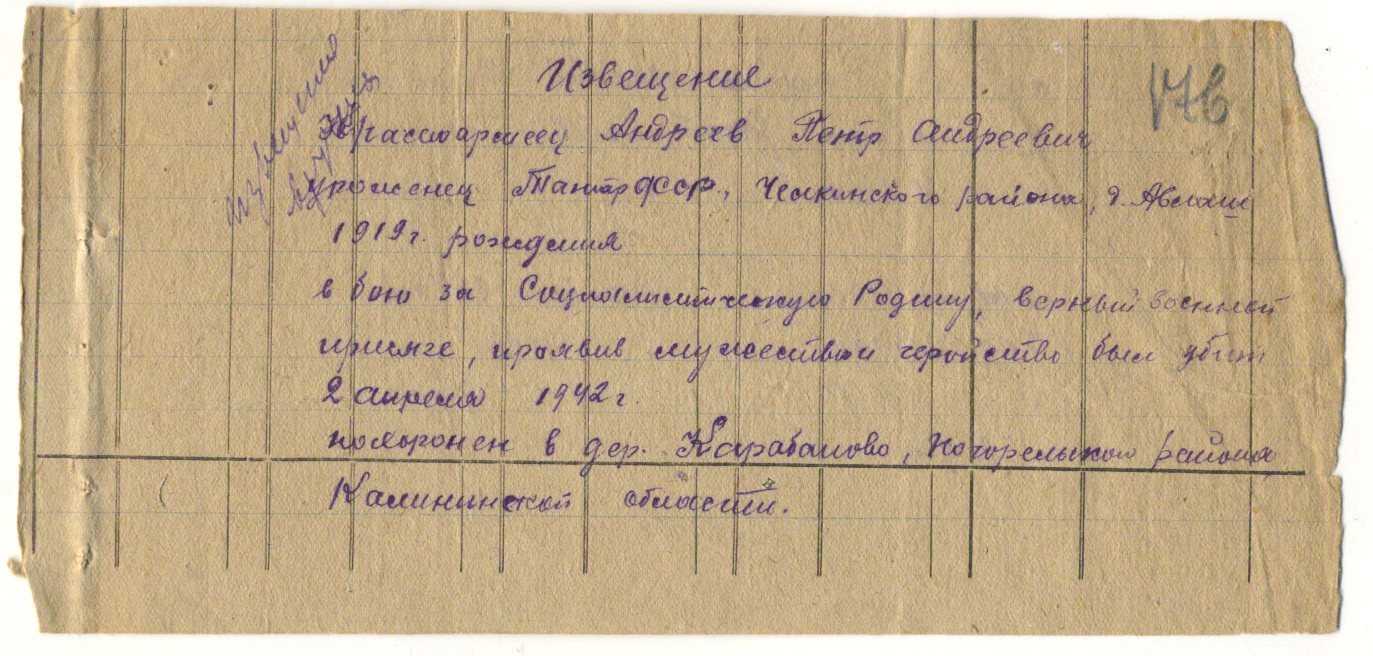 Извещение
176
извещение
вручено
Красноармеец Андреев Петр Андреевич
уроженец ТатарССР, Чемкинского района, д. Авлаш
1919 г. рождения
в бою за Социалистическую Родину, верный военной
присяге, проявив мужество и геройство был убит
2 апреля 1942 г.
похоронен в дер. Карабаново, Погорельского района,
Калининской области.